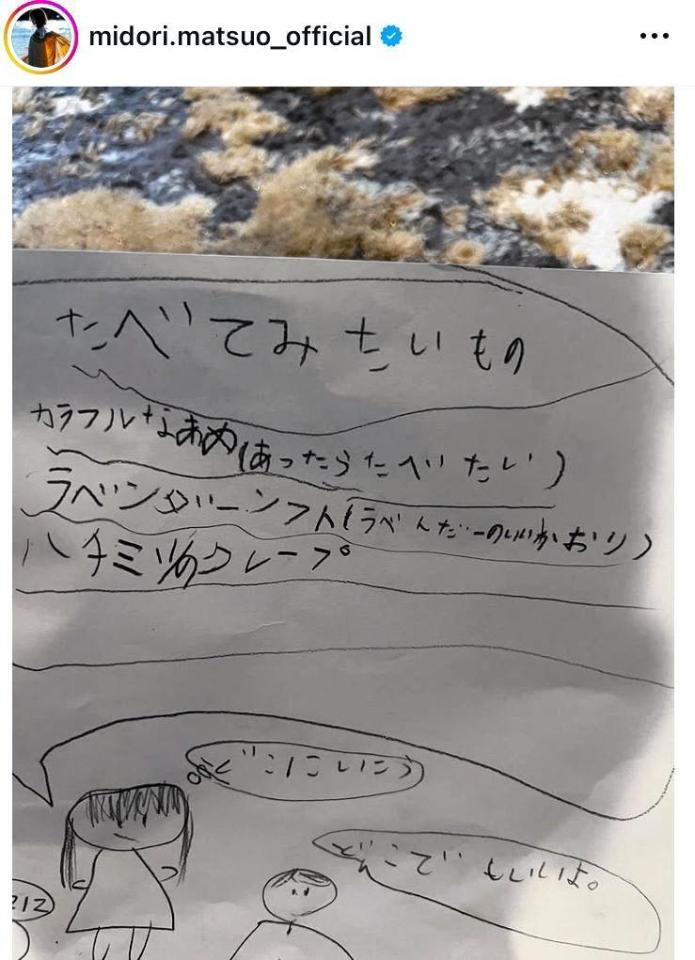 midori.matsuo_official
たべてみたいもの
カラフルなあめ(あったらたべたい)
ラベンダーソフト(ラベんだーのいいかおり)
ハチミツのクレープ
どこにいこう
どこでもいいよ。